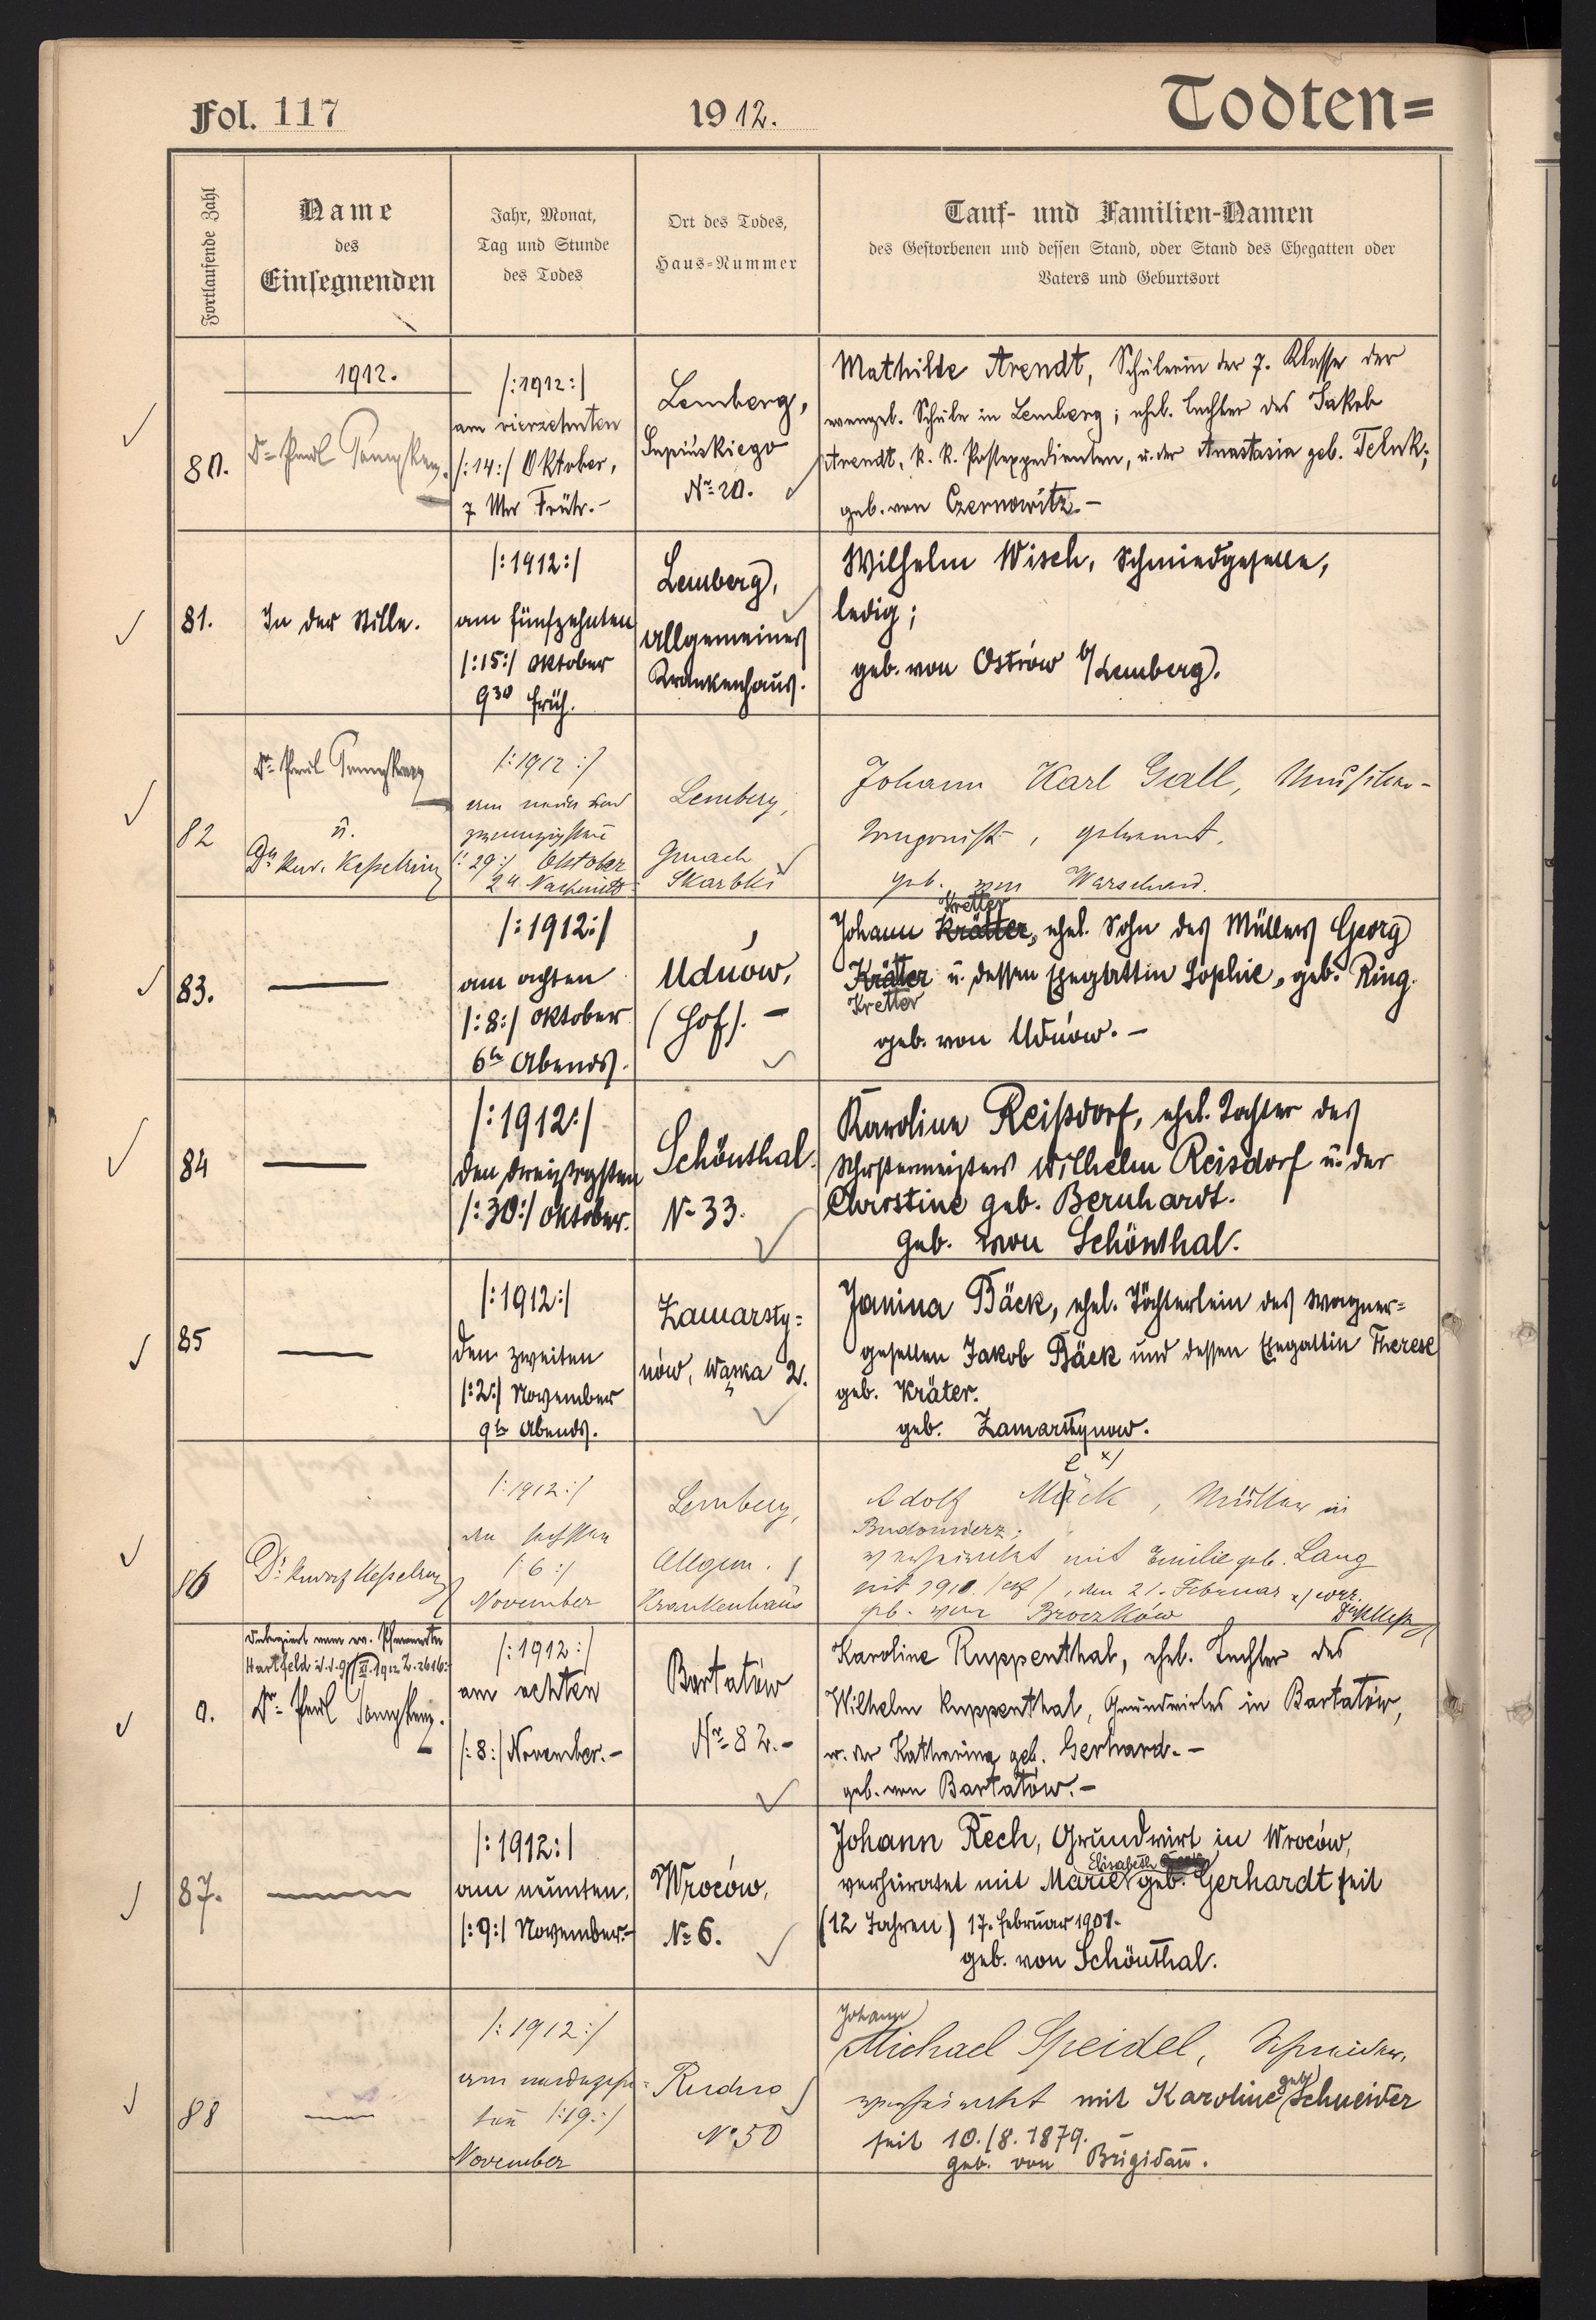 Fol. 117
1912.
Todten=
Fortlaufende Zahl
Name
des
Einsegnenden
Jahr, Monat,
Tag und Stunde
des Todes
Ort des Todes,
Haus-Nummer
Tauf- und Familien-Namen
des Gestorbenen und dessen Stand, oder Stand des Ehegatten oder
Vaters und Geburtsort
80.
1912.
Dr Paul
/:1912:/
am vierzehnten
/:14:/ Oktober,
7 Uhr Früh.-
Lemberg,
No 20.
Mathilde Arendt, Schülerin der 7. Klasse der
evangel. Schule in Lemberg; ehel. Tochter des Jakob
Arendt, k. k. Postexpedienten, u. der Anastasia geb.
geb. von Czernowitz.-
81.
In der Stille.
/:1912:/
am fünfzehnten
/:15:/ Oktober
9 30 früh.
Lemberg,
Allgemeines
Krankenhaus.
Wilhelm Wisch, Schmiedgeselle,
ledig;
geb. von Ostrów b/Lemberg.
82
Dr Paul
u.
Dr Rud. Kesselring
/:1912:/
am neun und
zwanzigsten
/:29:/ Oktober
2 u. Nachmitt.
Lemberg,
Gmach
Skarbki
Johann Karl Gall, Musikkom-
ponist, getrennt.
geb. von Warschau.
83.
/:1912:/
am achten
/:8:/ Oktober
6 h Abends.
Udnów,
(Hof).-
Kretter
Johann Krätter, ehel. Sohn des Müllers Georg
Kräter u. dessen Ehegattin Sophie, geb. Ring.
Kretter
geb. von Udnów.-
84
/:1912:/
den dreißigsten
/:30:/ Oktober.
Schönthal.
No 33.
Karoline Reißdorf, ehel. Tochter des
Schustermeisters Wilhelm Reisdorf u. der
Christine geb. Bernhardt.
geb. von Schönthal.
85
/:1912:/
den zweiten
/:2:/ November
9 h Abends.
Zamarsty=
nów, Wąska 2.
Janina Bäck, ehel. Töchterlein des Wagner=
gesellen Jakob Bäck und dessen Ehegattin Therese
geb. Kräter.
geb. Zamarstynow.
86
Dr Rudolf Kesselring
/:1912:/
den sechsten
/:6:/
November
Lemberg,
Allgem.
Krankenhaus
e x/
Adolf Mäck, Müller in
Budomierz;
verheiratet mit Emilie geb. Lang
seit 1910. , den 21. Februar x/ corr.
geb. von Broczków
0.
Delegiert vom ev. Pfarramte
Hartfeld d. d. 9/XI. 1912 Z. 2616:
Dr Paul
/:1912:/
am achten
/:8:/ November.-
Bartatów
No 82.-
Karoline Ruppenthal, ehel. Tochter des
Wilhelm Ruppenthal, Grundwirtes in Bartatów,
u. der Katharina geb. Gerhard.-
geb. von Bartatów.-
87.
/:1912:/
am neunten.
/:9:/ November.-
Wroców,
No 6.
Johann Rech, Grundwirt in Wroców,
Elisabeth
verheiratet mit Marie geb. Gerhardt seit
(12 Jahren) 17. Februar 1901.
geb. von Schönthal.
88
/:1912:/
am neunzehn=
ten /:19:/
November
Rudno
No 50
Johann
Michael Speidel, Schneider,
verheiratet mit Karoline geb. Schneider
seit 10./8. 1879.
geb. von Brigidau.